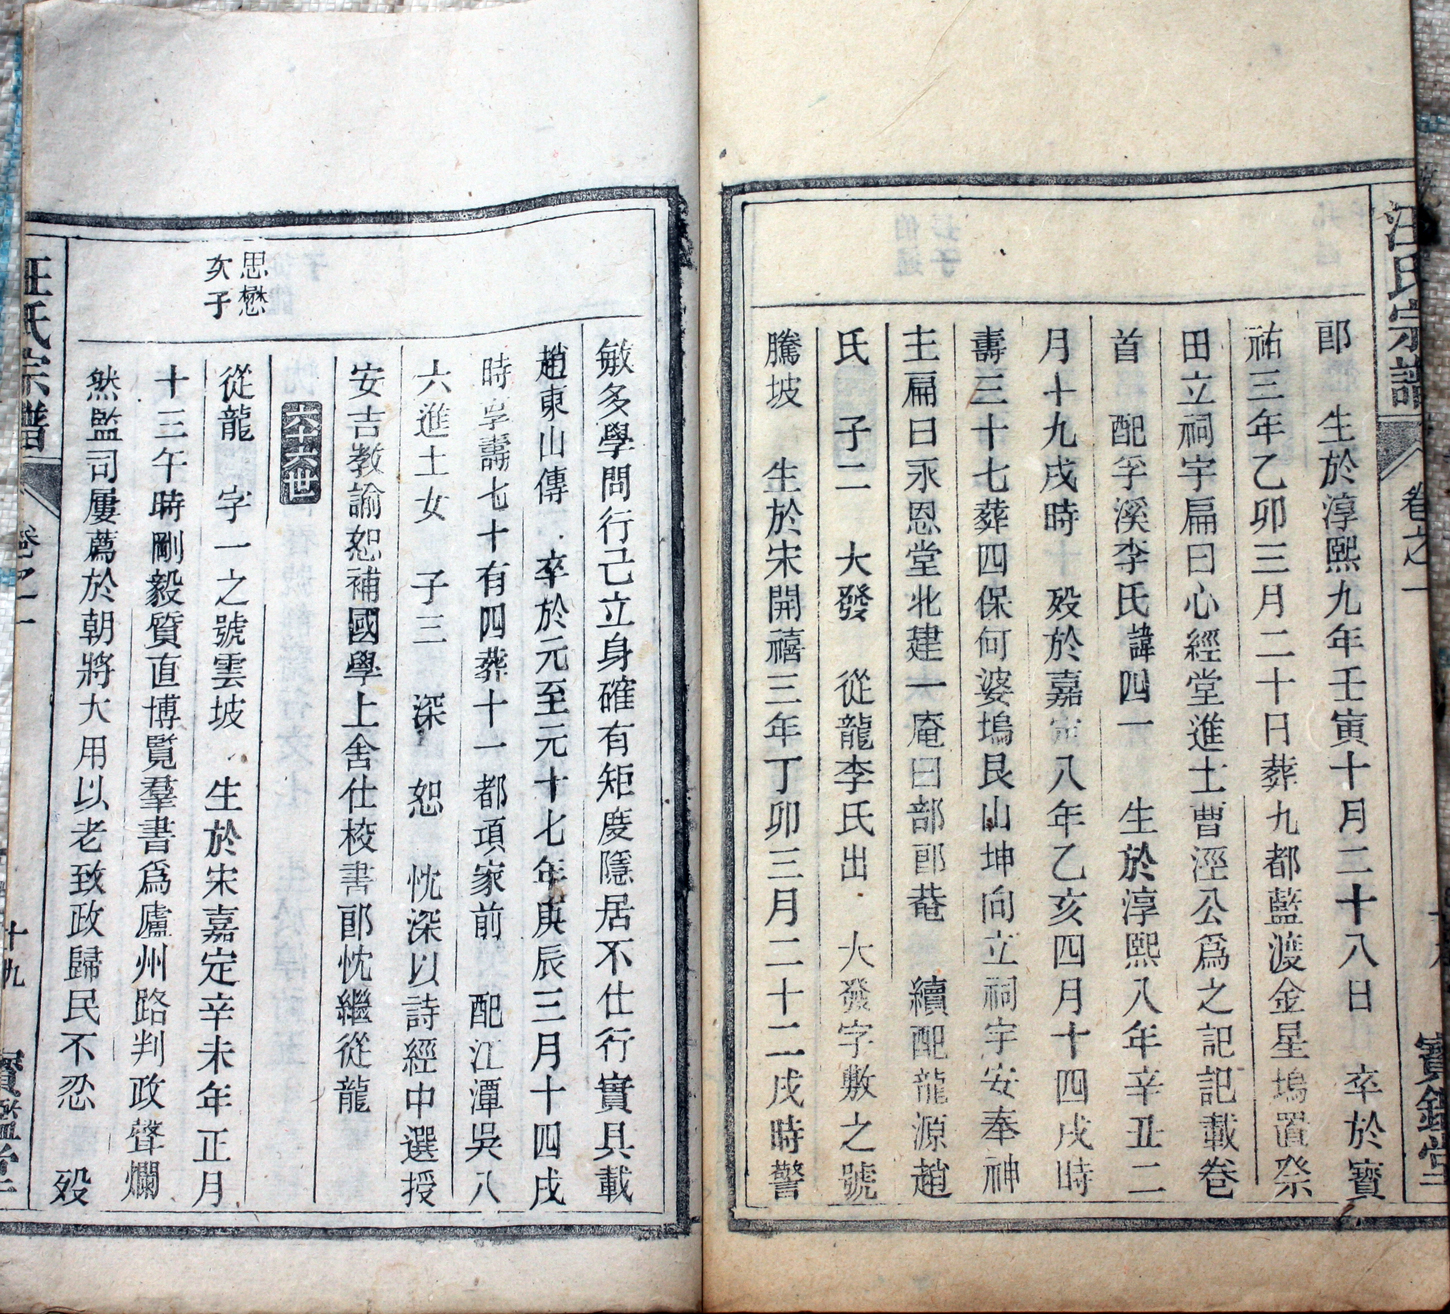 汪氏宗譜 卷之一 寶鑑堂
郎 生於淳熙九年壬寅十月二十八日 卒於寶
祐三年乙卯三月二十日葬九都藍渡金星塢置祭
田立祠宇扁曰心經堂進士曹涇公爲之記記載卷
首 配孚溪李氏諱四一 生於淳熙八年辛丑二
月十九戌時 殁於嘉定八年乙亥四月十四戌時
壽三十七葬四保何婆塢艮山坤向立祠宇安奉神
主扁曰永恩堂北建一庵曰部郎菴 續配龍源趙
氏 子二 大發 從龍李氏出 大發字敷之號
騰坡 生於宋開禧三年丁卯三月二十二戌時警
敏多學問行己立身確有矩度隱居不仕行實具載
趙東山傳 卒於元至元十七年庚辰三月十四戌
時享壽七十有四葬十一都項家前 配江潭吳八
六進士女 子三 深 恕 忱深以詩經中選授
安吉教諭恕補國學上舍仕校書郎忱繼從龍
六十六世
思懋
次子
從龍 字一之號雲坡 生於宋嘉定辛未年正月
十三午時剛毅質直博覽羣書爲廬州路判政聲爛
然監司屢薦於朝將大用以老致政歸民不忍 殁
汪氏宗譜 卷之一 十九 寶鑑堂